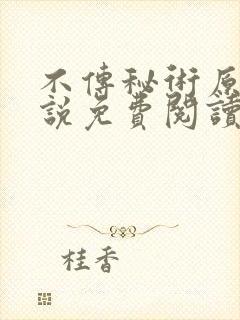 不傳秘術原
說免費閱讀
桂香